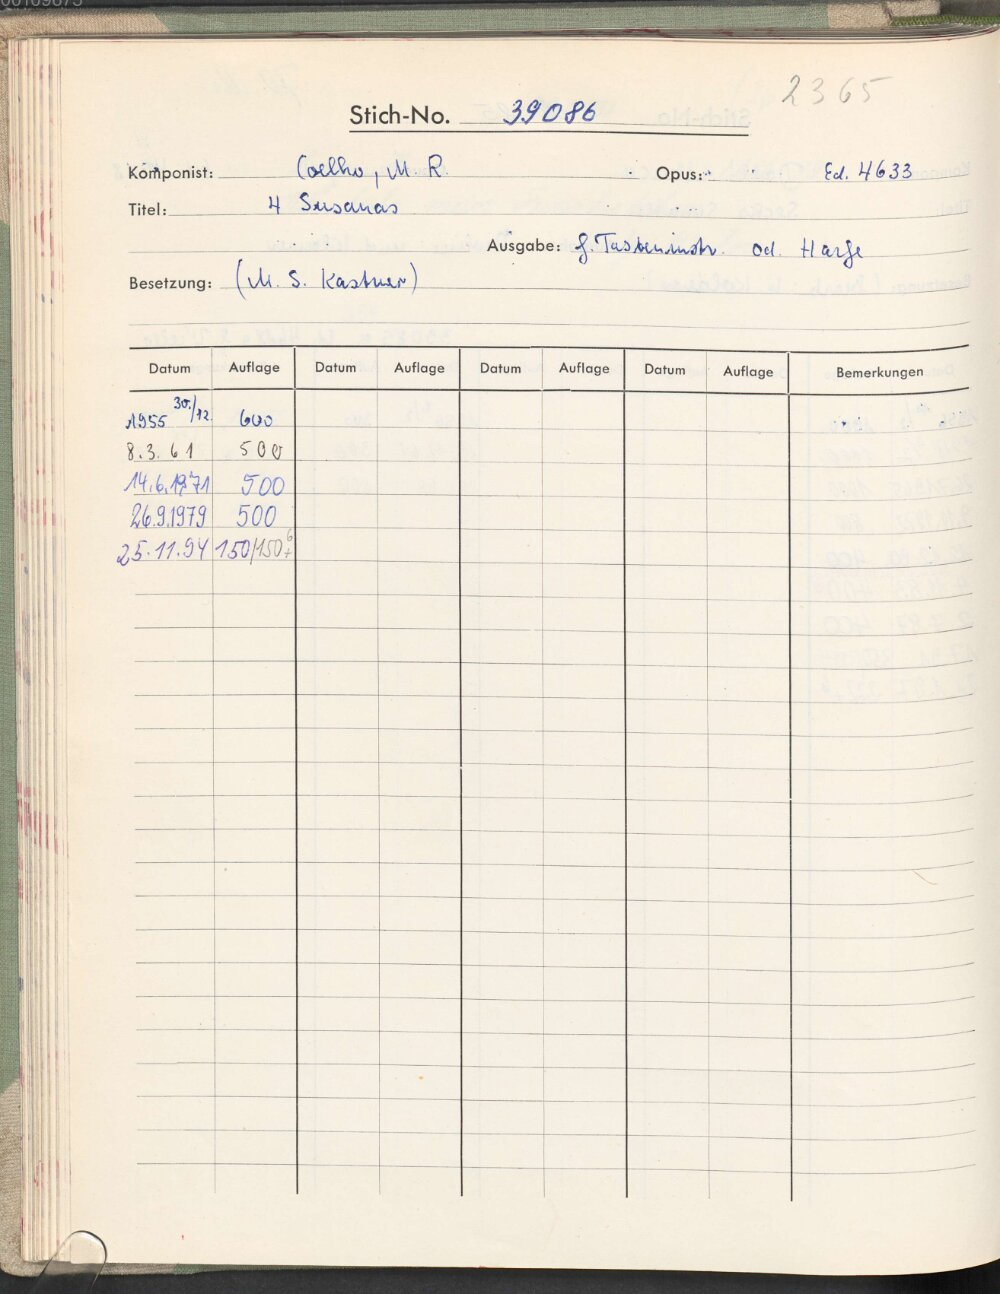 2365
Stich-No. 39086
Komponist: Coelho, M. R. Opus: Ed. 4633
Titel: 4 Susanas
Ausgabe: f. Tasteninstr. od. Harfe
Besetzung: (M. S. Kastner)
Datum Auflage Datum Auflage Datum Auflage Datum Auflage Bemerkungen
1955 30./12. 600
8.3.61 500
14.6.1971 500
26.9.1979 500
25.11.94 150/150